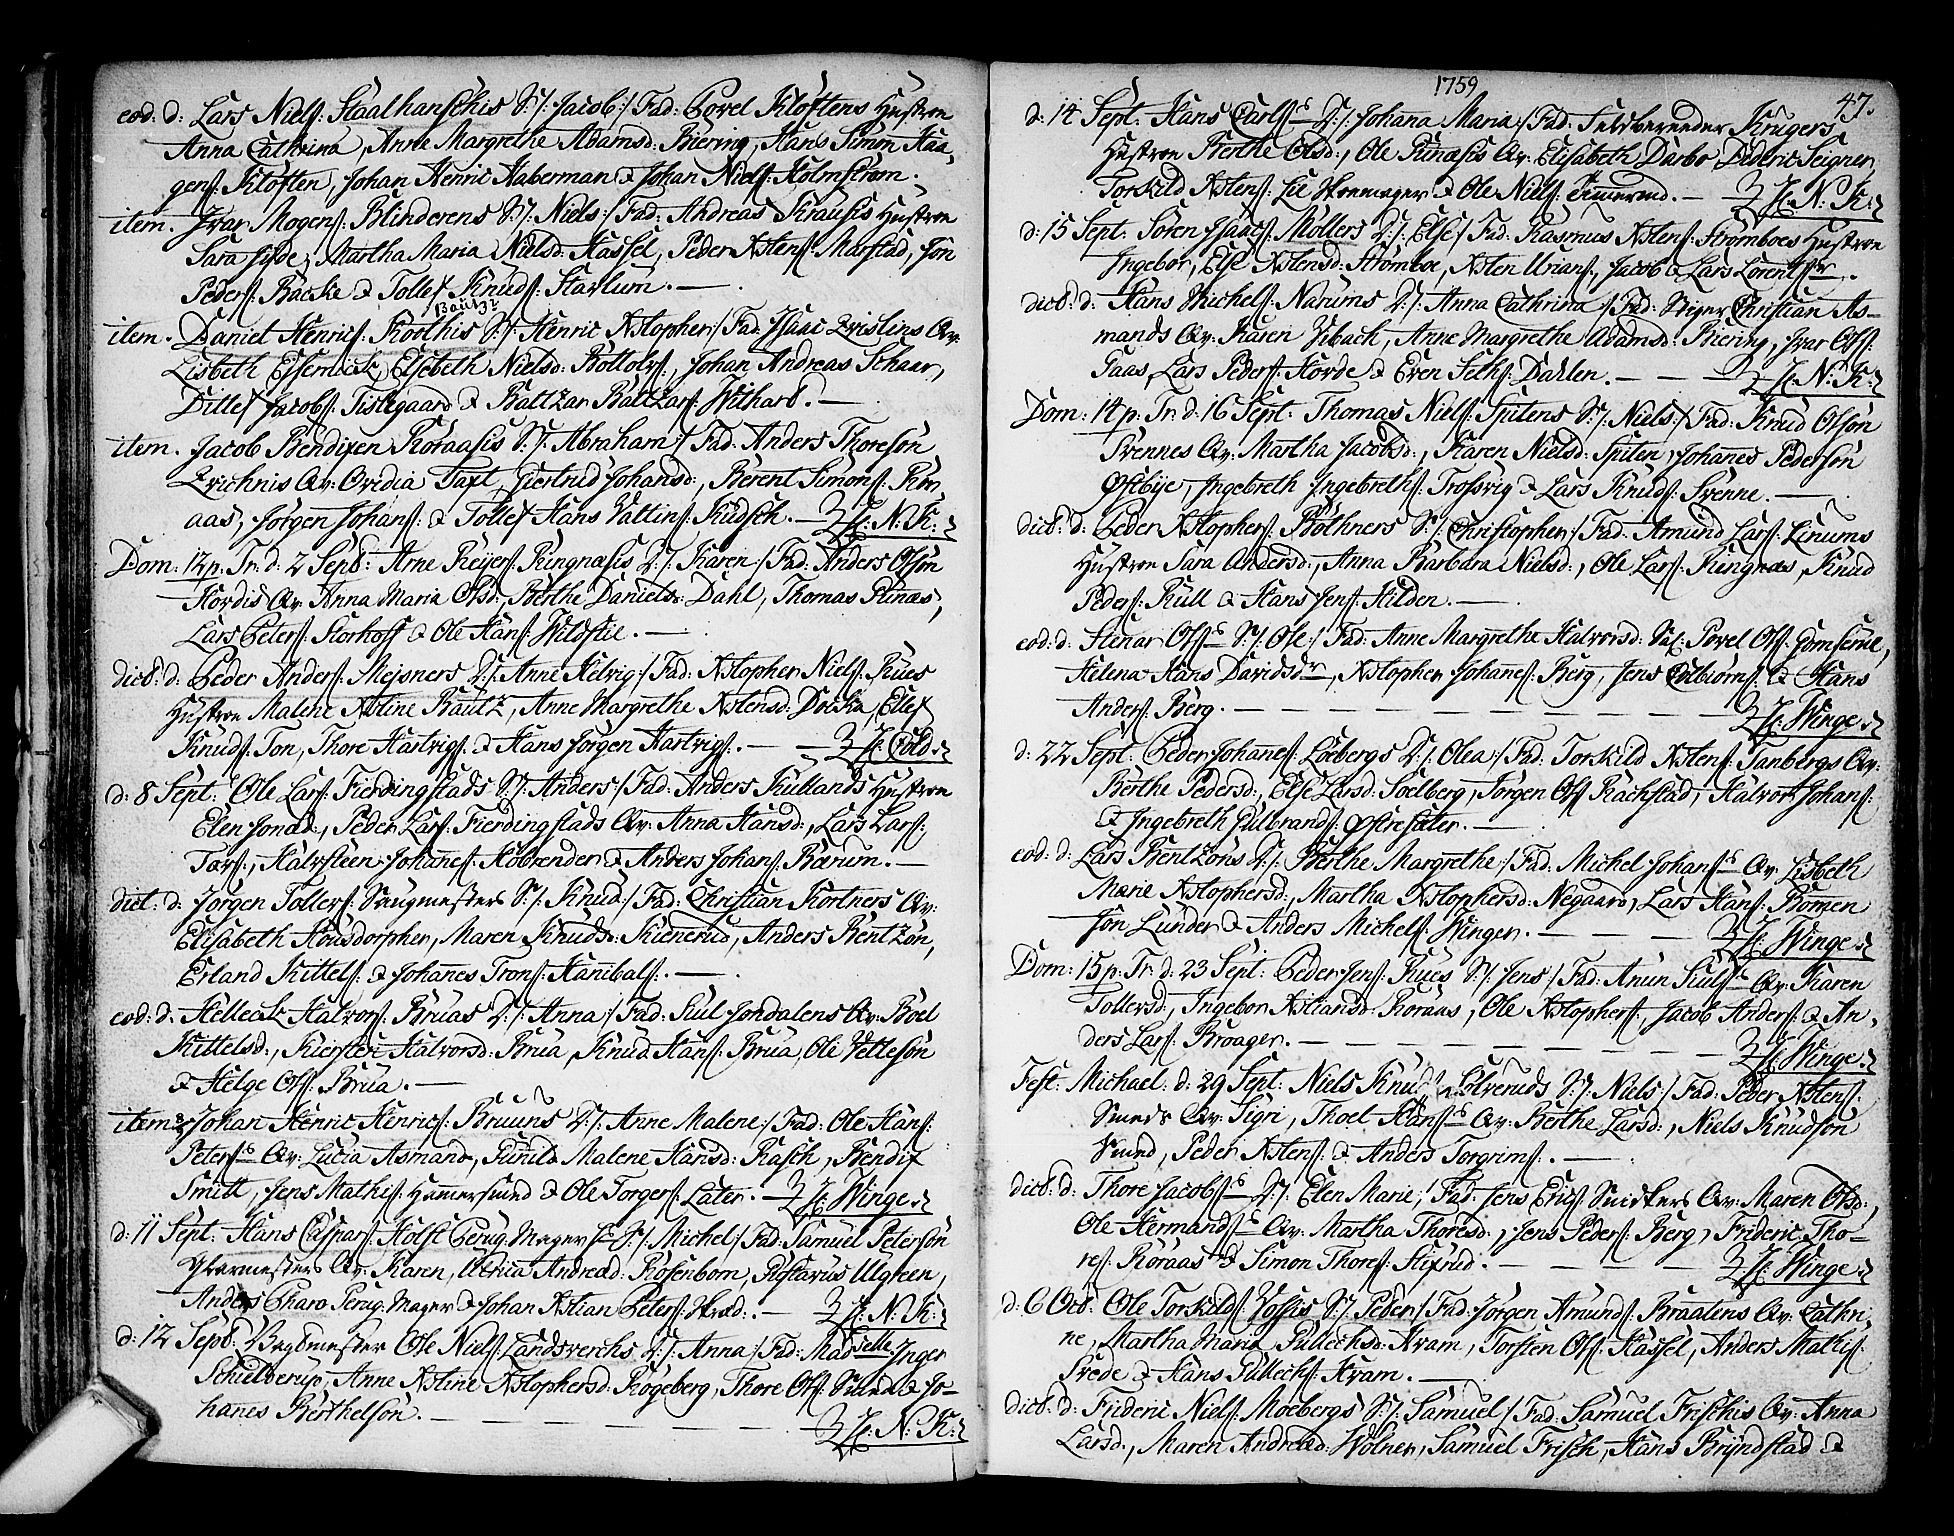 eod: d: Lars Niels: Staalhanschis S:/: Jacob:/ Fad: Povel Kloftens Hustroe
Anna Cathrina, Anne Margrethe Adamsd: Biering, Hans Simon Haa,
gens: Kloften, Johan Henric Haberman & Johan Niels: Holmstrøm.
item. Ivar Mogens: Blinderens S:/: Niels:/ Fad: Andreas Krausis Hustroe
Sara, Martha Maria Nielsd: Hassel, Peder Xstens: Marstad, Jon
Peders: Bache & Tollef Knuds: Starlum. —
Bautz
item. Daniel Henrics: Koothis S:/: Henric Xstopher:/ Fad: Isaac Qvislins Qv:
Lisbeth, Elsebeth Nielsd: Bottolfs:, Johan Andreas Schaar,
Ditlef Jacobs: Tislegaard & Baltzar Baltzars: Withard. —
item. Jacob Bendixen Roraasis S:/: Abraham:/ Fad: Anders Thoresøn
Zrichnis Qv: Ovidia Taxt, Giertrud Johansd:, Berent Simons: Rør
aas, Jørgen Johans: & Tollef Hans Vattins Kudsch. — H: N: K:
Dom: 12 p. Tr. d: 2 Septb: Arne Reyers: Ringnæsis D:/: Karen:/ Fad: Anders Olsøn
Hordis Qv: Anna Maria Olsd:, Berthe Daniels: Dahl, Thomas Runæs,
Lars Peters: Storhoff & Ole Hans: Wildstie. —
dict: d: Peder Anders: Mejsners D:/: Anne Helvig:/ Fad: Xstopher Niels: Rues
Hustroe Malene Xstine Bautz, Anne Margrethe Xstensd: Docka, Ellef
Knuds: Ton, Thore Hartvigs: & Hans Jørgen Hartvigs:. — H: Cold.
d: 8 Sept: Ole Lars: Fierdingstads S:/: Anders:/ Fad: Anders Rullands Hustroe
Elen Jonæd:, Peder Lars: Fierdingstads Qv: Anna Hansd:, Lars Lars:
Tors:, Halvsteen Johanes: Hobrender & Anders Johans: Bærum. —
dict: d: Jørgen Tollers: Saugmesters S:/: Knud:/ Fad: Christian Kortners Qv:
Elisabeth Housdorpher, Maren Knudsd: Kienerud, Anders Bentzøn,
Erland Kittels: & Johanes Trons: Hanibals:. —
eod: d: Helleck Halvors: Bruas D:/: Anna:/ Fad: Juul Jondalens Qv: Boel
Kittelsd:, Kiersten Halvorsd: Brua, Knud Hans: Brua, Ole Vetlesøn
& Helge Ols: Brua. —
item Johan Henric Henrics: Bruuns D:/: Anne Malene:/ Fad: Ole Hans:
Peters: Qv: Lucia Asmand, Gunild Malene Hansd: Rasch, Bendix
Smitt, Jens Mathis: Hamersmed & Ole Torgers: Later. — H: Winge
d: 11 Sept: Hans Caspars: Holst Perug: Mager S:/: Michel:/ Fad: Samuel Petersøn
Glarmesters Qv: Karen, Ulrica Andread: Rosenborn, Gustavus Ulgreen,
Anders Charo Perug: Mager & Johan Xstian Peters: — H: N: K:
d: 12 Septb: Bergmester Ole Niels: Landsverchs D:/: Anna:/ Fad: Madselle Inger
Schielderup, Anne Xstine Xstophersd: Rogeberg, Thore Ols: Smed & Jo-
hanes Berthelsøn. — — — H: N: K:
1759
47.
d: 14 Sept: Hans Carls: D:/: Johana Maria:/ Fad: Feldbereeder Krugers
Hustroe Berthe Olsd:, Ole Runæsis Qv: Elisabeth Darbo, Dideric Seigner,
Torskild Xstens: Lie & Ole Niels:. — H: N: K:
d: 15 Sept: Søren Isaacs: Møllers D:/: Else:/ Fad: Rasmus Xstens: Strømboes Hustroe
Ingebor, Else Xstensd: Strømboe, Xsten Urians:, Jacob & Lars Lorents:.
dict: d: Hans Michels: Narums D:/: Anna Cathrina:/ Fad: Christian As-
mands Qv: Karen Vibach, Anne Margrethe Adamsd: Biering, Ivar Ols:
Gaas, Lars Peders: Horde & Even Seths: Dahlen. — — H: N: K:
Dom: 14 p. Tr. d: 16 Sept: Thomas Niels: Spitens S:/: Niels:/ Fad: Knud Olsøn
Svennes Qv: Martha Jacobsd:, Karen Nielsd: Spiten, Johanes Pedersøn
Østbye, Ingebreth Ingebreths: Trosvig & Lars Knuds: Svenne. —
dict: d: Peder Xstophers: Bøthners S:/: Christopher:/ Fad: Amund Lars: Linums
Hustroe Sara Andersd:, Anna Barbara Nielsd:, Ole Lars: Ringnæs, Knud
Peders: Kull & Hans Jens: Hilden. —
eod: d: Stenar Ols: S:/: Ole:/ Fad: Anne Margrethe Halvorsd: Sal: Povel Ols:,
Helena Hans Davids:, Xstopher Johanes: Berg, Jens Colbiørns: & Hans
Anders: Berg. — — — H: Winge
d: 22 Sept: Peder Johanes: Løebergs D:/: Olea:/ Fad: Torskild Xstens: Tanbergs Qv:
Berthe Pedersd:, Else Larsd: Soelberg, Jørgen Ols: Rachstad, Halvor Johans:
& Ingebreth Gulbrands: Østresæter. —
eod: d: Lars Bentzøns D:/: Berthe Margrethe:/ Fad: Michel Johans: Qv: Lisbeth
Marie Xstophersd:, Martha Xstophersd: Negaard, Lars Hans: Bomen
Jon Lunder & Anders Michels: Winger. — — H: Winge
Dom: 15 p. Tr. d: 23 Sept: Peder Jens: Rues S:/: Jens:/ Fad: Anun Juuls: Qv: Karen
Tollersd:, Ingebor Xstiansd: Roraas, Ole Xstophers:, Jacob Anders: & An,
ders Lars: Broager. — — — H: Winge
Fest: Michael: d: 29 Sept: Niels Knuds: Solveruds S:/: Niels:/ Fad: Peder Xstens:
Smeds Qv: Sigri, Thoel Hans: Qv: Berthe Larsd:, Niels Knudsøn
Smed, Peder Xstens: & Anders Torgrims:. —
dict: d: Thore Jacobs: D:/: Elen Marie:/ Fad: Jens Erics: Snidkers Qv: Maren Olsd:,
Ole Hermands: Qv: Martha Thoresd:, Jens Peders: Berg, Frideric Tho-
res: Roraas & Simon Thores: Stixrud. — — H: Winge
d: 6 Octb: Ole Torskilds: Vossis S:/: Peder:/ Fad: Jørgen Amunds: Braatens Qv: Cathri-
ne, Martha Maria Gullechsd: Hram, Torsten Ols: Hassel, Anders Mathis:
Frede & Hans Gullechs: Hram. —
dict: d: Frideric Niels: Moebergs S:/: Samuel:/ Fad: Samuel Frischis Qv: Anna
Larsd:, Maren Andread: Wolner, Samuel Frisch, Hans Bryndstad &